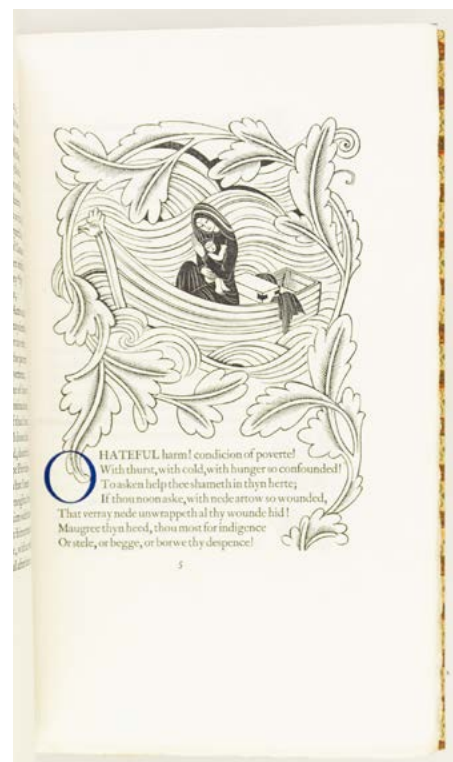 O HATEFUL harm! condicion of poverte!
With thurst, with cold, with hunger so confounded!
To asken help thee shameth in thyn herte;
If thou noon aske, with nede artow so wounded,
That verray nede unwrappeth al thy wounde hid!
Maugree thyn heed, thou most for indigence
Or stele, or begge, or borwe thy despence!
5